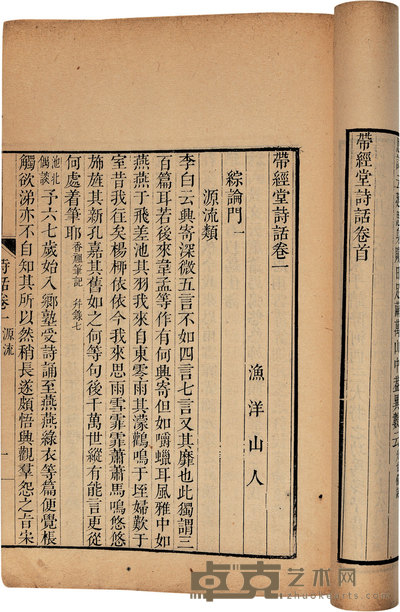 帶經堂詩話卷首
帶經堂詩話卷一
漁洋山人
綜論門一
源流類
李白云興寄深微五言不如四言七言又其靡也此獨謂三
百篇耳若後來韋孟等作有何興寄但如嚼蠟耳風雅中如
燕燕于飛差池其羽我來自東零雨其濛鸛鳴于垤婦歎于
室昔我往矣楊柳依依今我來思雨雪霏霏蕭蕭馬鳴悠悠
斾旌其新孔嘉其舊如之何等句後千萬世縱有能言更從
何處着筆耶 香祖筆記
池北偶談 予六七歲始入鄉塾受詩誦至燕燕綠衣等篇便覺棖
觸欲涕亦不自知其所以然稍長遂頗悟興觀羣怨之旨宋
詩話卷一 源流 一
卓克艺术网